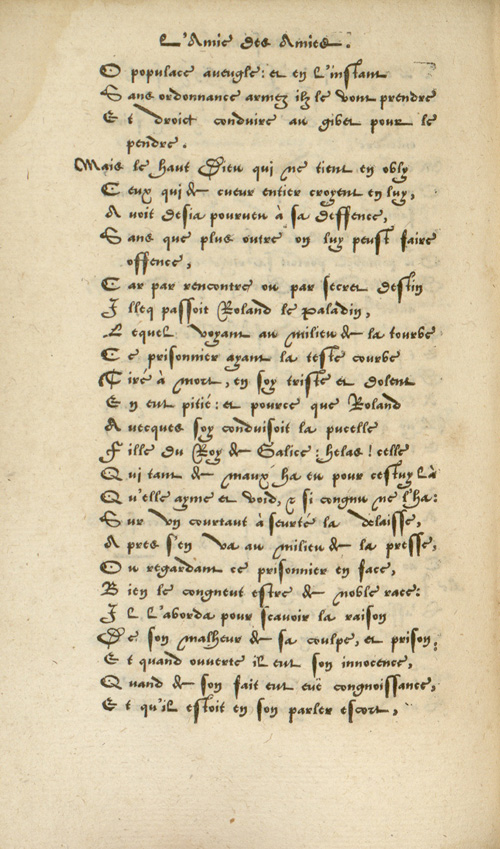 L'Amie des Amies.
O populace aveugle: et en l'instant
Sans ordonnance armez ilz le vont prendre
Et droict conduire au gibet pour le
pendre.
Mais le haut Dieu qui ne tient en obly
Ceux qui de cueur entier croyent en luy,
Avoit desia pourveu à sa deffence,
Sans que plus outre on luy peust faire
offence,
Car par rencontre ou par secret destin
Illeq passoit Roland le paladin,
Lequel voyant au milieu de la tourbe
Ce prisonnier ayant la teste courbe
Tiré à mort, en soy triste et dolent
En eut pitié: et pource que Roland
Avecques soy conduisoit la pucelle
Fille du Roy de Galice: helas! celle
Qui tant de maux ha eu pour cestuy là
Qu'elle ayme et void, & si congnu ne l'ha:
Sur un courtaut à seurté la delaisse,
Apres s'en va au milieu de la presse,
Ou regardant ce prisonnier en face,
Bien le congneut estre de noble race:
Il l'aborda pour scavoir la raison
De son malheur de sa coulpe, et prison,
Et quand ouverte il eut son innocence,
Quand de son fait eut eüe congnoissance,
Et qu'il estoit en son parler escort,